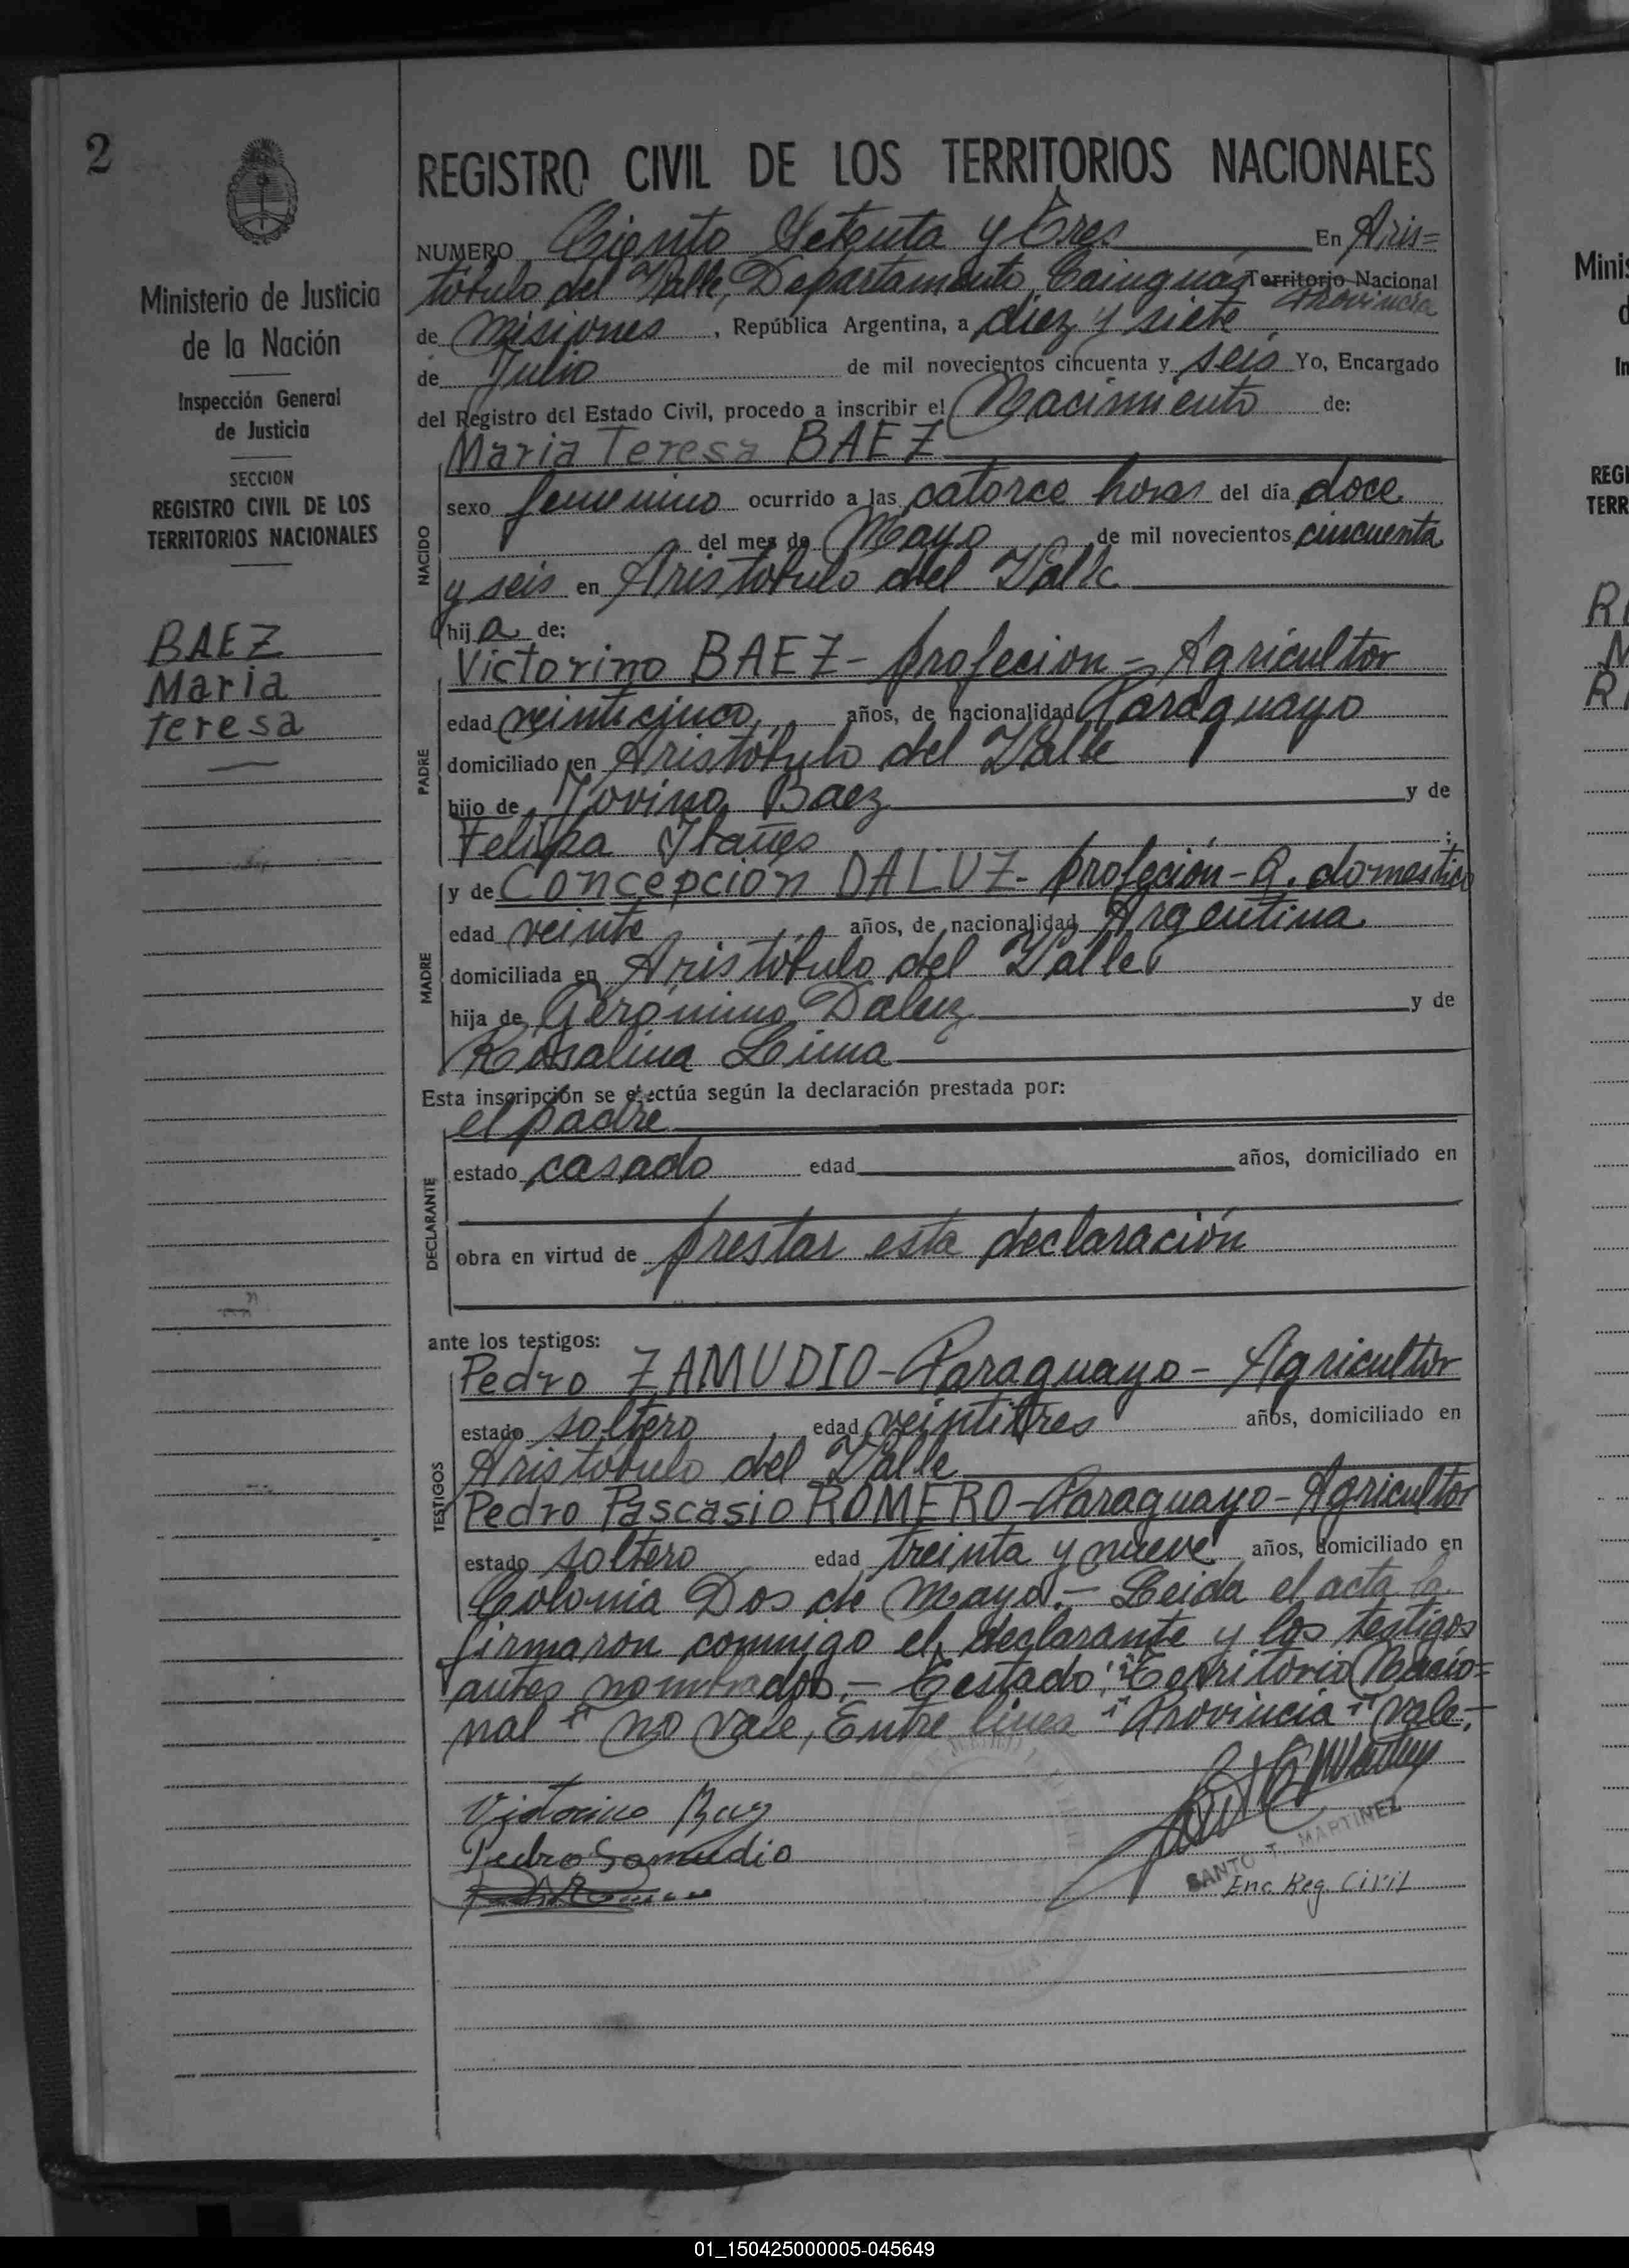 2
REGISTRO CIVIL DE LOS TERRITORIOS NACIONALES
Ministerio de Justicia
de la Nación
Inspección General
de Justicia
SECCION
REGISTRO CIVIL DE LOS
TERRITORIOS NACIONALES
BAEZ
Maria
Teresa
NUMERO Ciento Setenta y Tres En Aris=
tóbulo del Valle, Departamento Cainguás Territorio Nacional
Provincia
de Misiones, República Argentina, a diez y siete
de Julio de mil novecientos cincuenta y seis Yo, Encargado
del Registro del Estado Civil, procedo a inscribir el Nacimiento de:
Maria Teresa BAEZ
NACIDO
sexo femenino ocurrido a las catorce horas del día doce
del mes de Mayo de mil novecientos cincuenta
y seis en Aristobulo del Valle
hija de:
PADRE
Victorino BAEZ- profecion- Agricultor
edad veinticinco, años, de nacionalidad Paraguayo
domiciliado en Aristóbulo del Valle
hijo de Jovino Baez y de
Felipa Ibañes
MADRE
y de Concepción DALUZ- profeción-Q. domestico
edad veinte años, de nacionalidad Argentina
domiciliada en Aristóbulo del Valle
hija de Gerónimo Daluz y de
Rosalina Lima
Esta inscripción se efectúa según la declaración prestada por:
el padre
DECLARANTE
estado casado edad años, domiciliado en
obra en virtud de prestar esta declaración
ante los testigos:
TESTIGOS
Pedro ZAMUDIO-Paraguayo- Agricultor
estado soltero edad veintitres años, domiciliado en
Aristóbulo del Valle
Pedro Pascasio ROMERO-Paraguayo-Agricultor
estado soltero edad treinta y nueve años, domiciliado en
Colonia Dos de Mayo.- Leida el acta la
firmaron conmigo el declarante y los testigos
antes nombrados.- Testado: "Territorio Nacio=
nal" no vale, Entre linea "Provincia" vale.-
Victorino Baez
Pedro Samudio
SANTO T. MARTINEZ
Enc. Reg. Civil
Minis
REGI
TERR
01_150425000005-045649